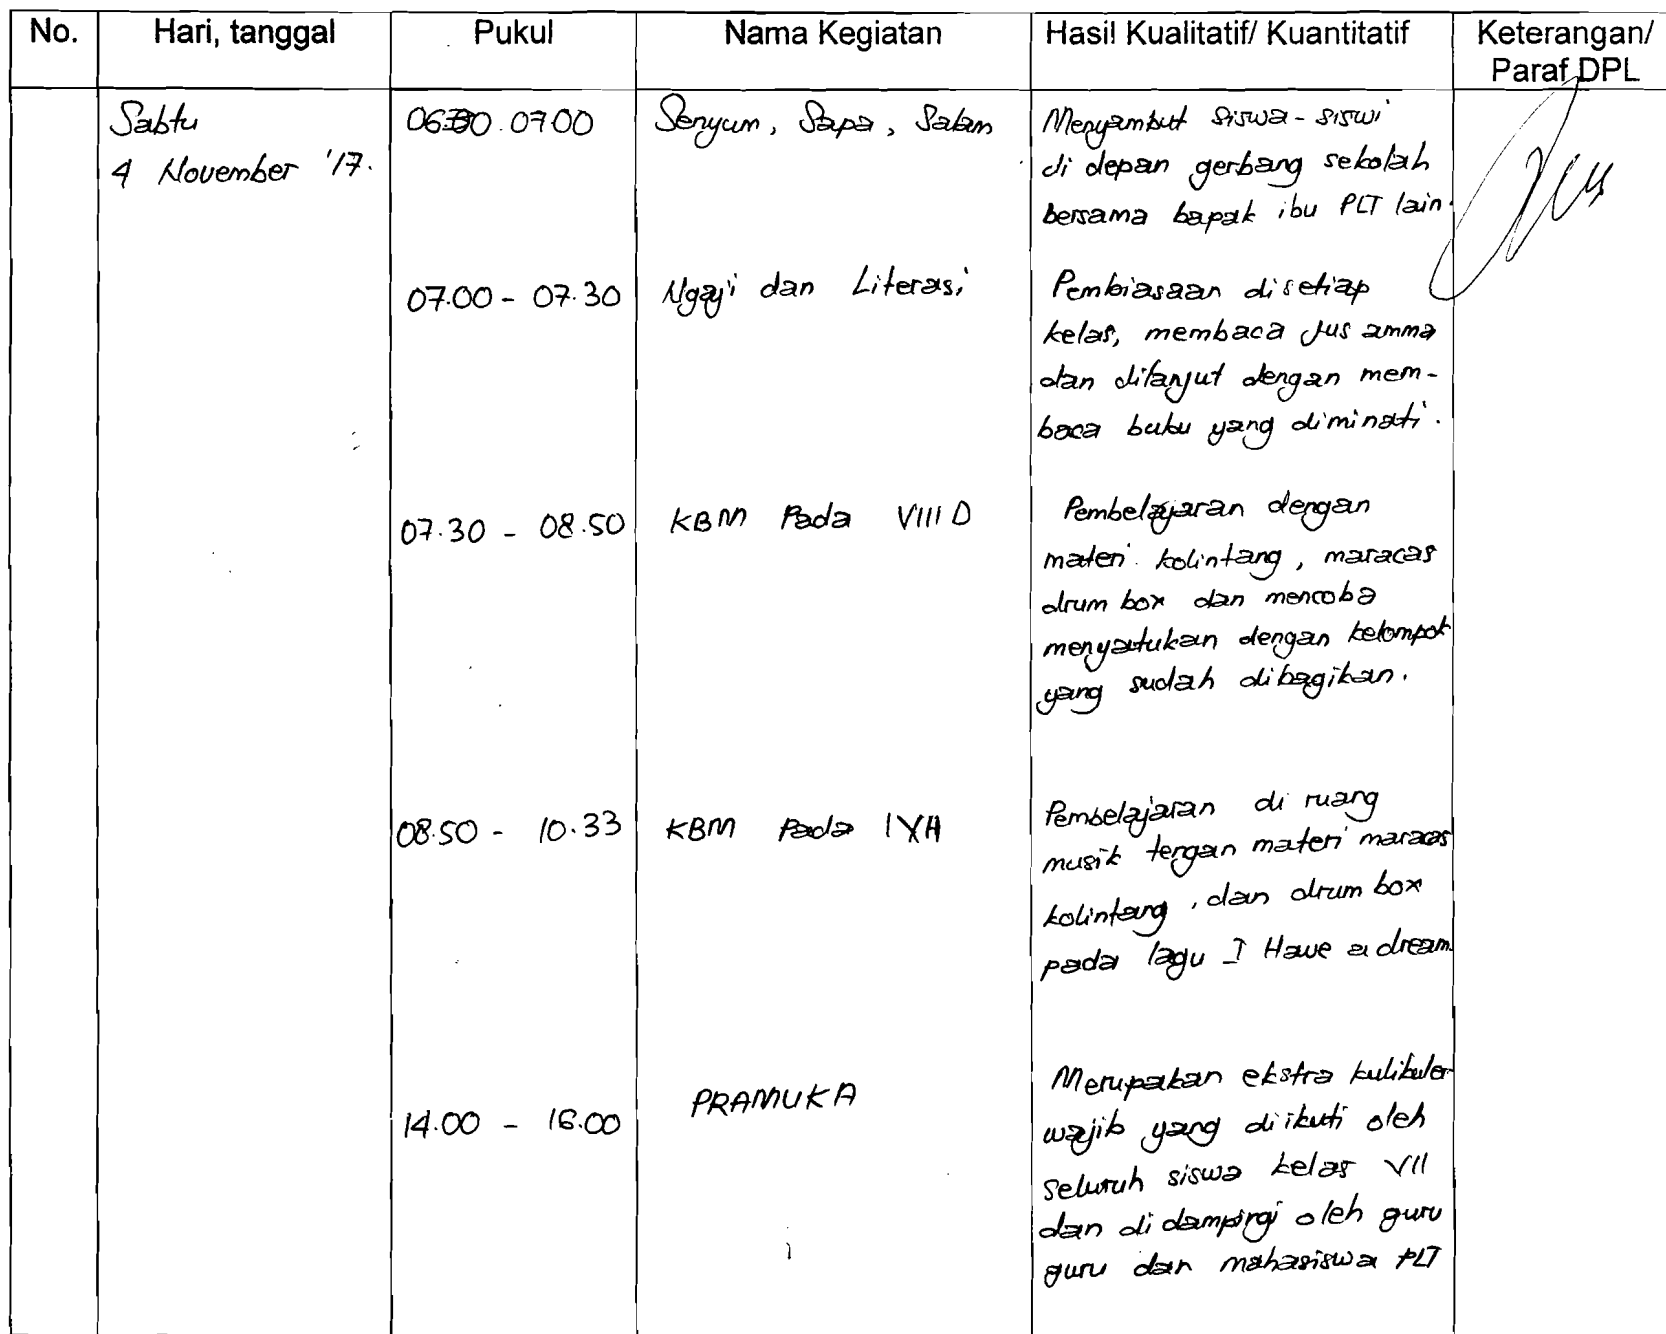 No. Hari, tanggal Pukul Nama Kegiatan Hasil Kualitatif/ Kuantitatif Keterangan/
Paraf DPL
Sabtu
4 November '17.
06.30.07.00
Senyum, Sapa, Salam
Menyambut siswa-siswi
di depan gerbang sekolah
bersama bapak ibu PLT lain.
07.00 - 07.30
Ngaji dan Literasi
Pembiasaan disetiap
kelas, membaca jus amma
dan dilanjut dengan mem-
baca buku yang diminati.
07.30 - 08.50
KBM Pada VIII D
Pembelajaran dengan
materi kolintang, maracas
drum box dan mencoba
menyatukan dengan kelompok
yang sudah dibagikan.
08.50 - 10.33
KBM Pada IXH
Pembelajaran di ruang
musik tengan materi maracas
kolintang, dan drum box
pada lagu I Have a dream.
14.00 - 16.00
PRAMUKA
Merupakan ekstra kulikuler
wajib yang diikuti oleh
seluruh siswa kelas VII
dan didampingi oleh guru
guru dan mahasiswa PLT